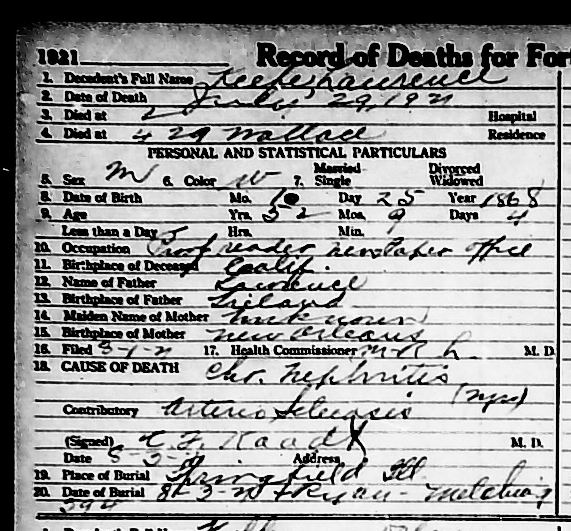 1921 Record of Deaths for For
1. Decedent's Full Name Keefe, Lawrence
2. Date of Death July 29, 1921
3. Died at Hospital
4. Died at 429 Wallace Residence
PERSONAL AND STATISTICAL PARTICULARS
5. Sex M 6. Color W 7. Married Single Divorced Widowed
8. Date of Birth Mo. 10 Day 25 Year 1868
9. Age Yrs. 52 Mos. 9 Days 4
Less than a Day Hrs. Min.
10. Occupation Proof reader newspaper office
11. Birthplace of Deceased Calif.
12. Name of Father Lawrence
13. Birthplace of Father Ireland
14. Maiden Name of Mother Unknown
15. Birthplace of Mother New Orleans
16. Filed 8-1-21 17. Health Commissioner M. D.
18. CAUSE OF DEATH Chr. Nephritis
Contributory Arterio Sclerosis
(Signed) M. D.
Date Address
19. Place of Burial Springfield Ill
20. Date of Burial 8-3-21
394